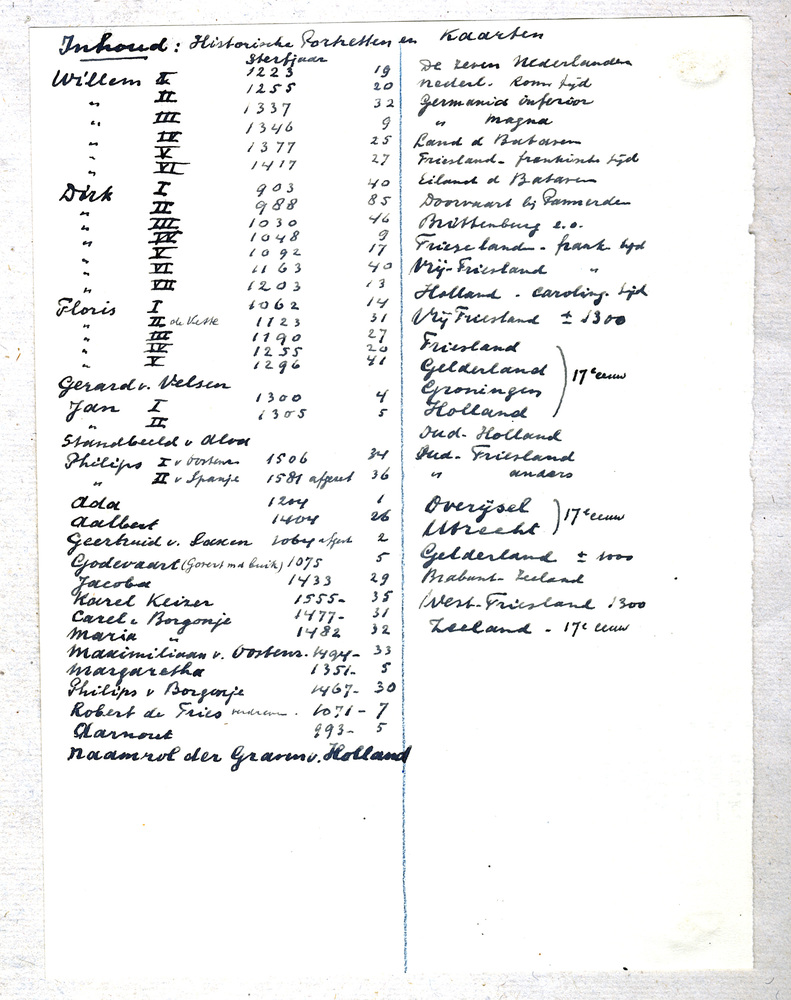 Inhoud: Historische Portretten en Kaarten
Sterfjaar
Willem I 1223 19
" II 1255 20
" III 1337 32
" IV 1346 9
" V 1377 25
" VI 1417 27
Dirk I 903 40
" II 988 85
" III 1030 46
" IV 1048 9
" V 1092 17
" VI 1163 40
" VII 1203 13
Floris I 1062 14
" II de Vette 1123 31
" III 1190 27
" IV 1255 20
" V 1296 41
Gerard v. Velsen
Jan I 1300 4
" II 1305 5
Standbeeld v Alva
Philips I v Oostenr 1506 34
" II v Spanje 1581 afgezet 36
Ada 1204 1
Aalbert 1404 26
Geertruid v. Saxen 1064 afget 2
Godevaart (Govert md buik) 1075 5
Jacoba 1433 29
Karel Keizer 1555- 35
Carel v Borgonje 1477- 31
Maria " 1482 32
Maximiliaan v. Oostenr. 1494- 33
Margaretha 1351- 5
Philips v Borgonje 1467- 30
Robert de Fries verdreven. 1071- 7
Aarnout 993- 5
Naamrol der Graven v. Holland
De zeven Nederlanden
Nederl. Rom. tijd
Germania inferior
" magna
Land d Bataven
Friesland- frankische tijd
Eiland d Bataven
Doorvaart bij Pannerden
Brittenburg e.o.
Frieseland- frank tijd
Vrij-Friesland "
Holland - caroling. tijd
Vrij Friesland ± 1300
Friesland
Gelderland
Groningen
Holland
17e eeuw
Oud-Holland
Oud-Friesland
" anders
Overijsel
Utrecht
17e eeuw
Gelderland ± 1000
Brabant-Zeeland
West-Friesland 1300
Zeeland - 17e eeuw